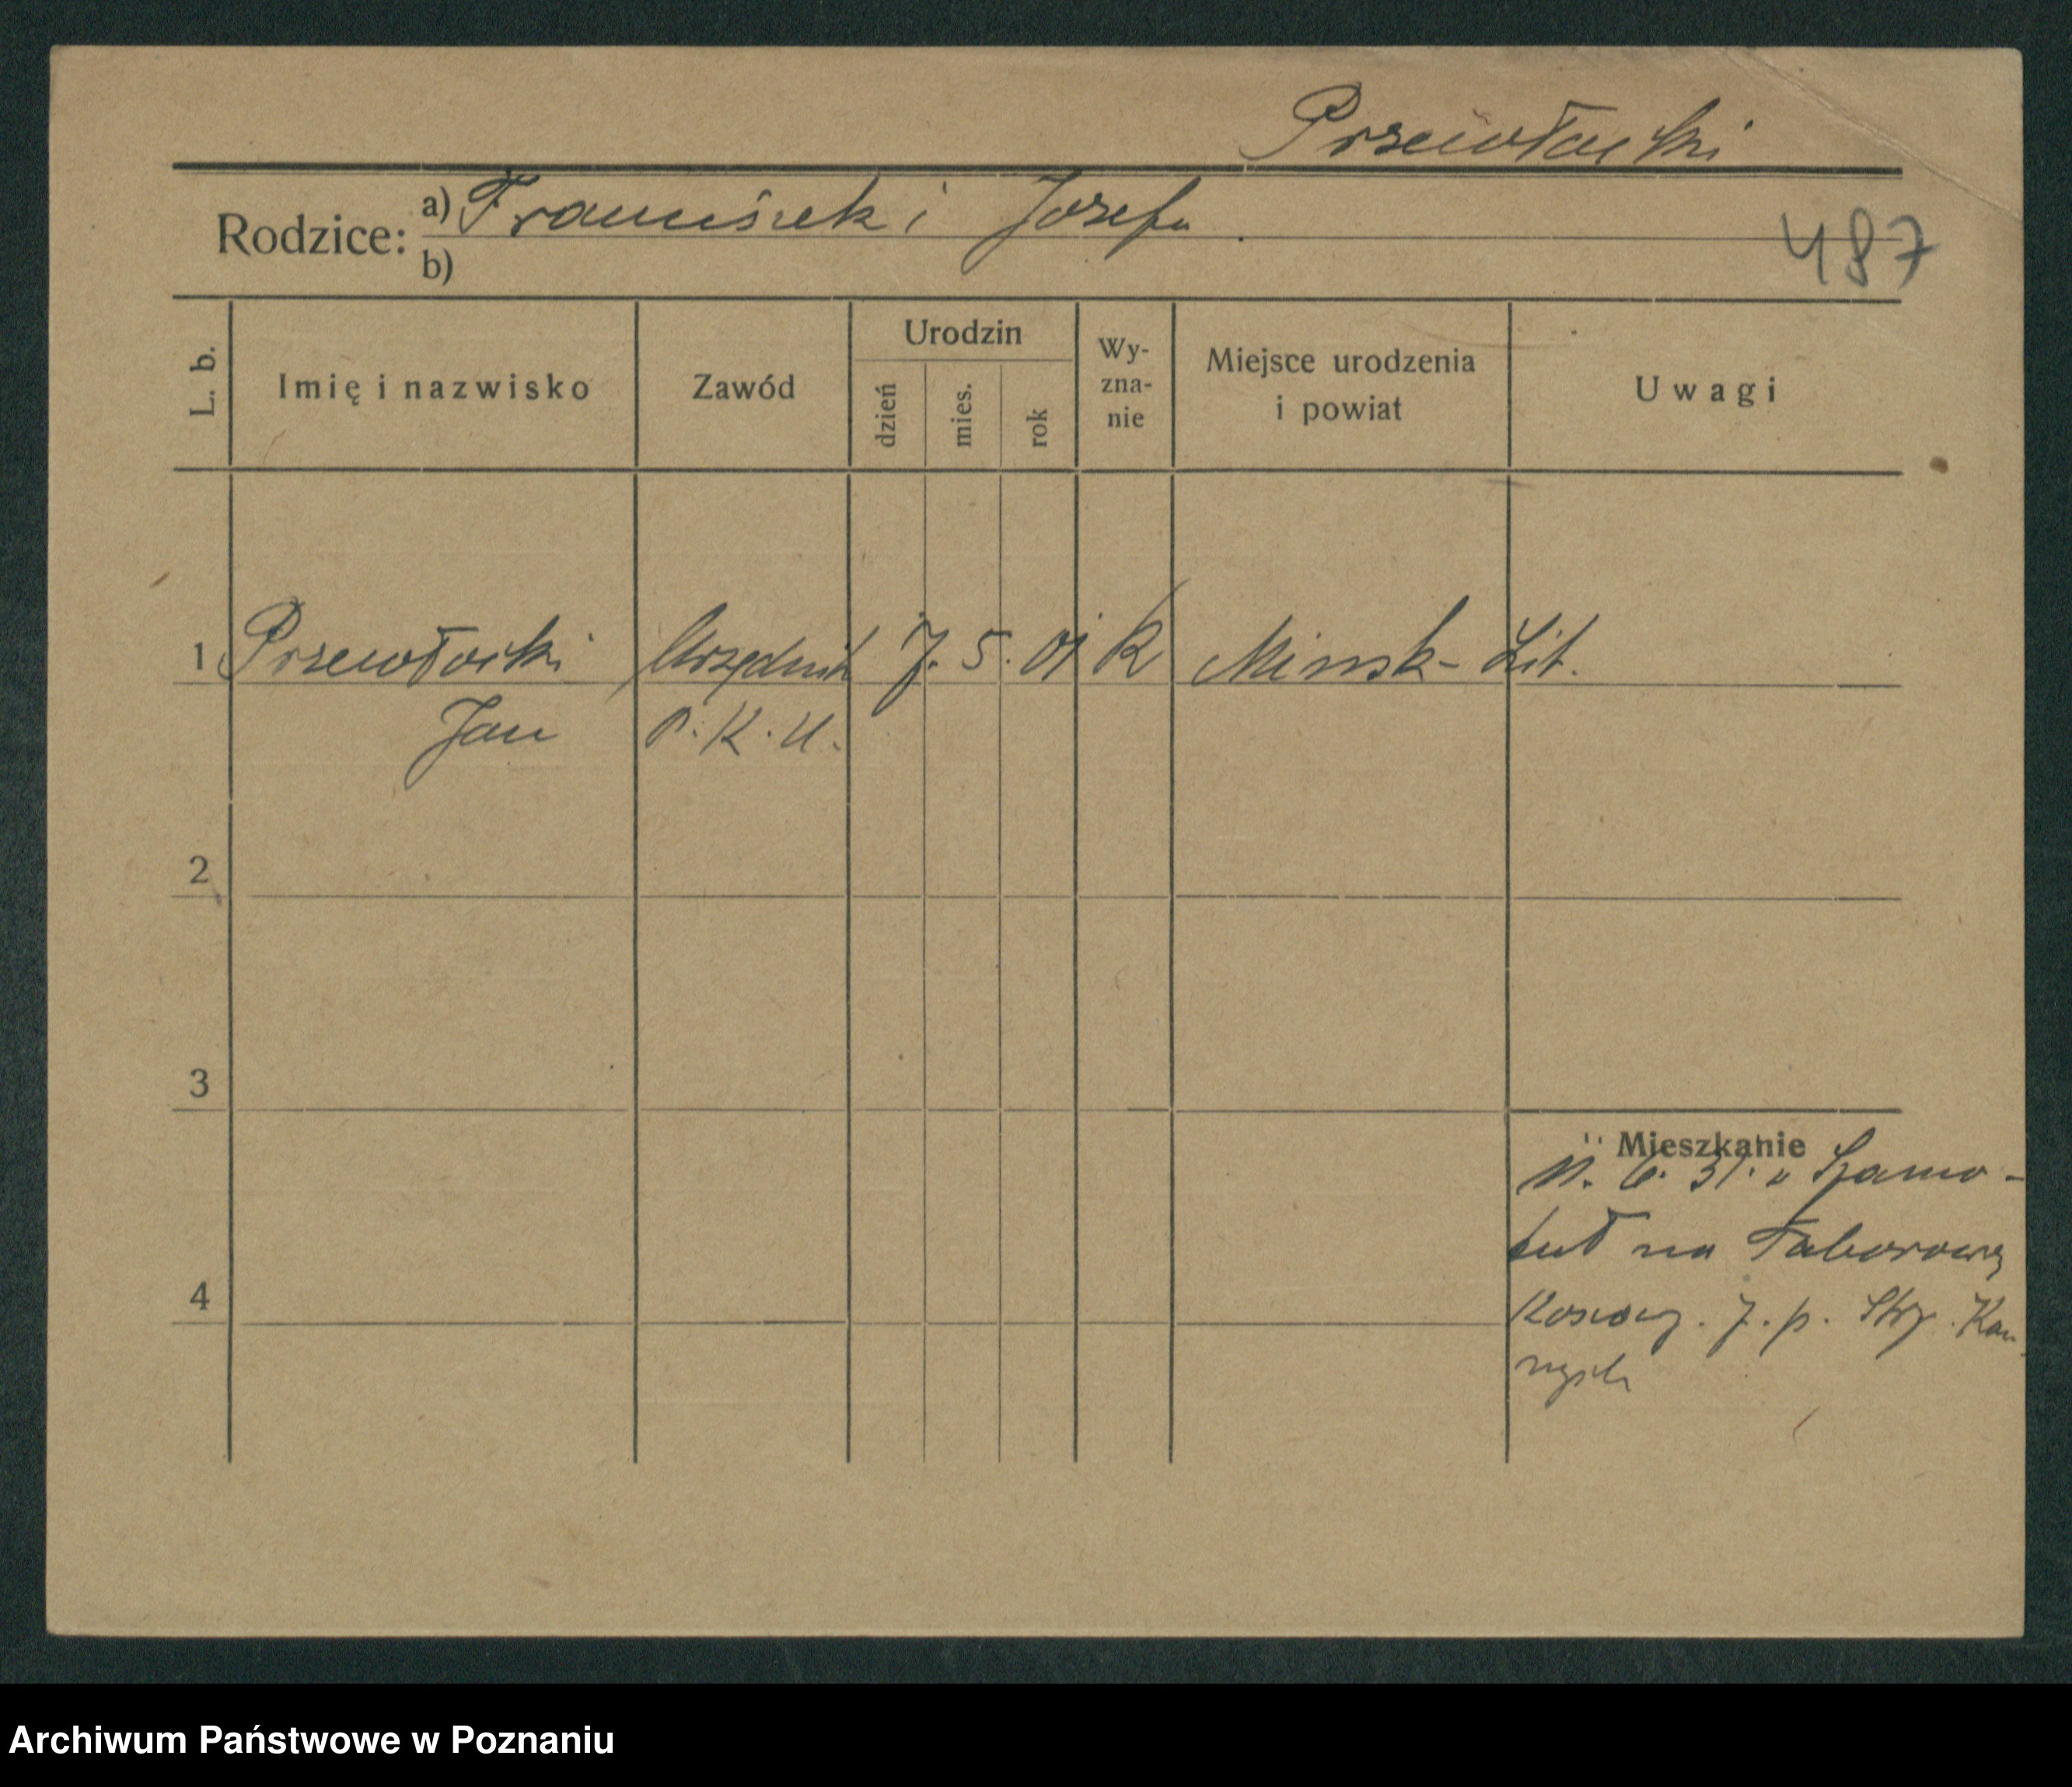 Przewłocki
Rodzice: a) Franciszek i Józefa.
b)
487
L. b. Imię i nazwisko Zawód Urodzin dzień mies. rok Wy-zna-nie Miejsce urodzenia i powiat Uwagi
1 Przewłocki Urzędnik 7. 5. 01 K Minsk-Lit.
Jan P. K. U.
2
3
Mieszkanie
11. 6. 31. z Szamo-
tuł na Taborową
4
Koszary. 7. p. Strz. Kon
nych
Archiwum Państwowe w Poznaniu